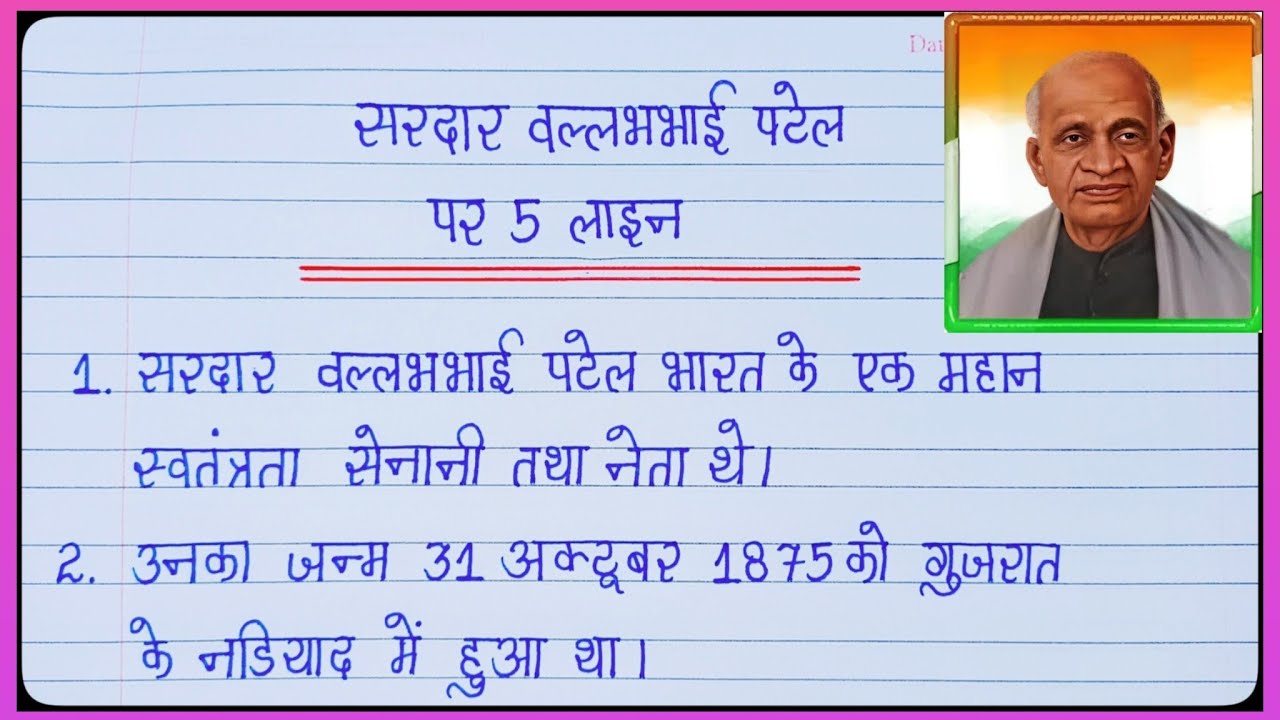 Dat
सरदार वल्लभभाई पटेल
पर 5 लाइन
1. सरदार वल्लभभाई पटेल भारत के एक महान
स्वतंत्रता सेनानी तथा नेता थे।
2. उनका जन्म 31 अक्टूबर 1875 को गुजरात
के नडियाद में हुआ था।